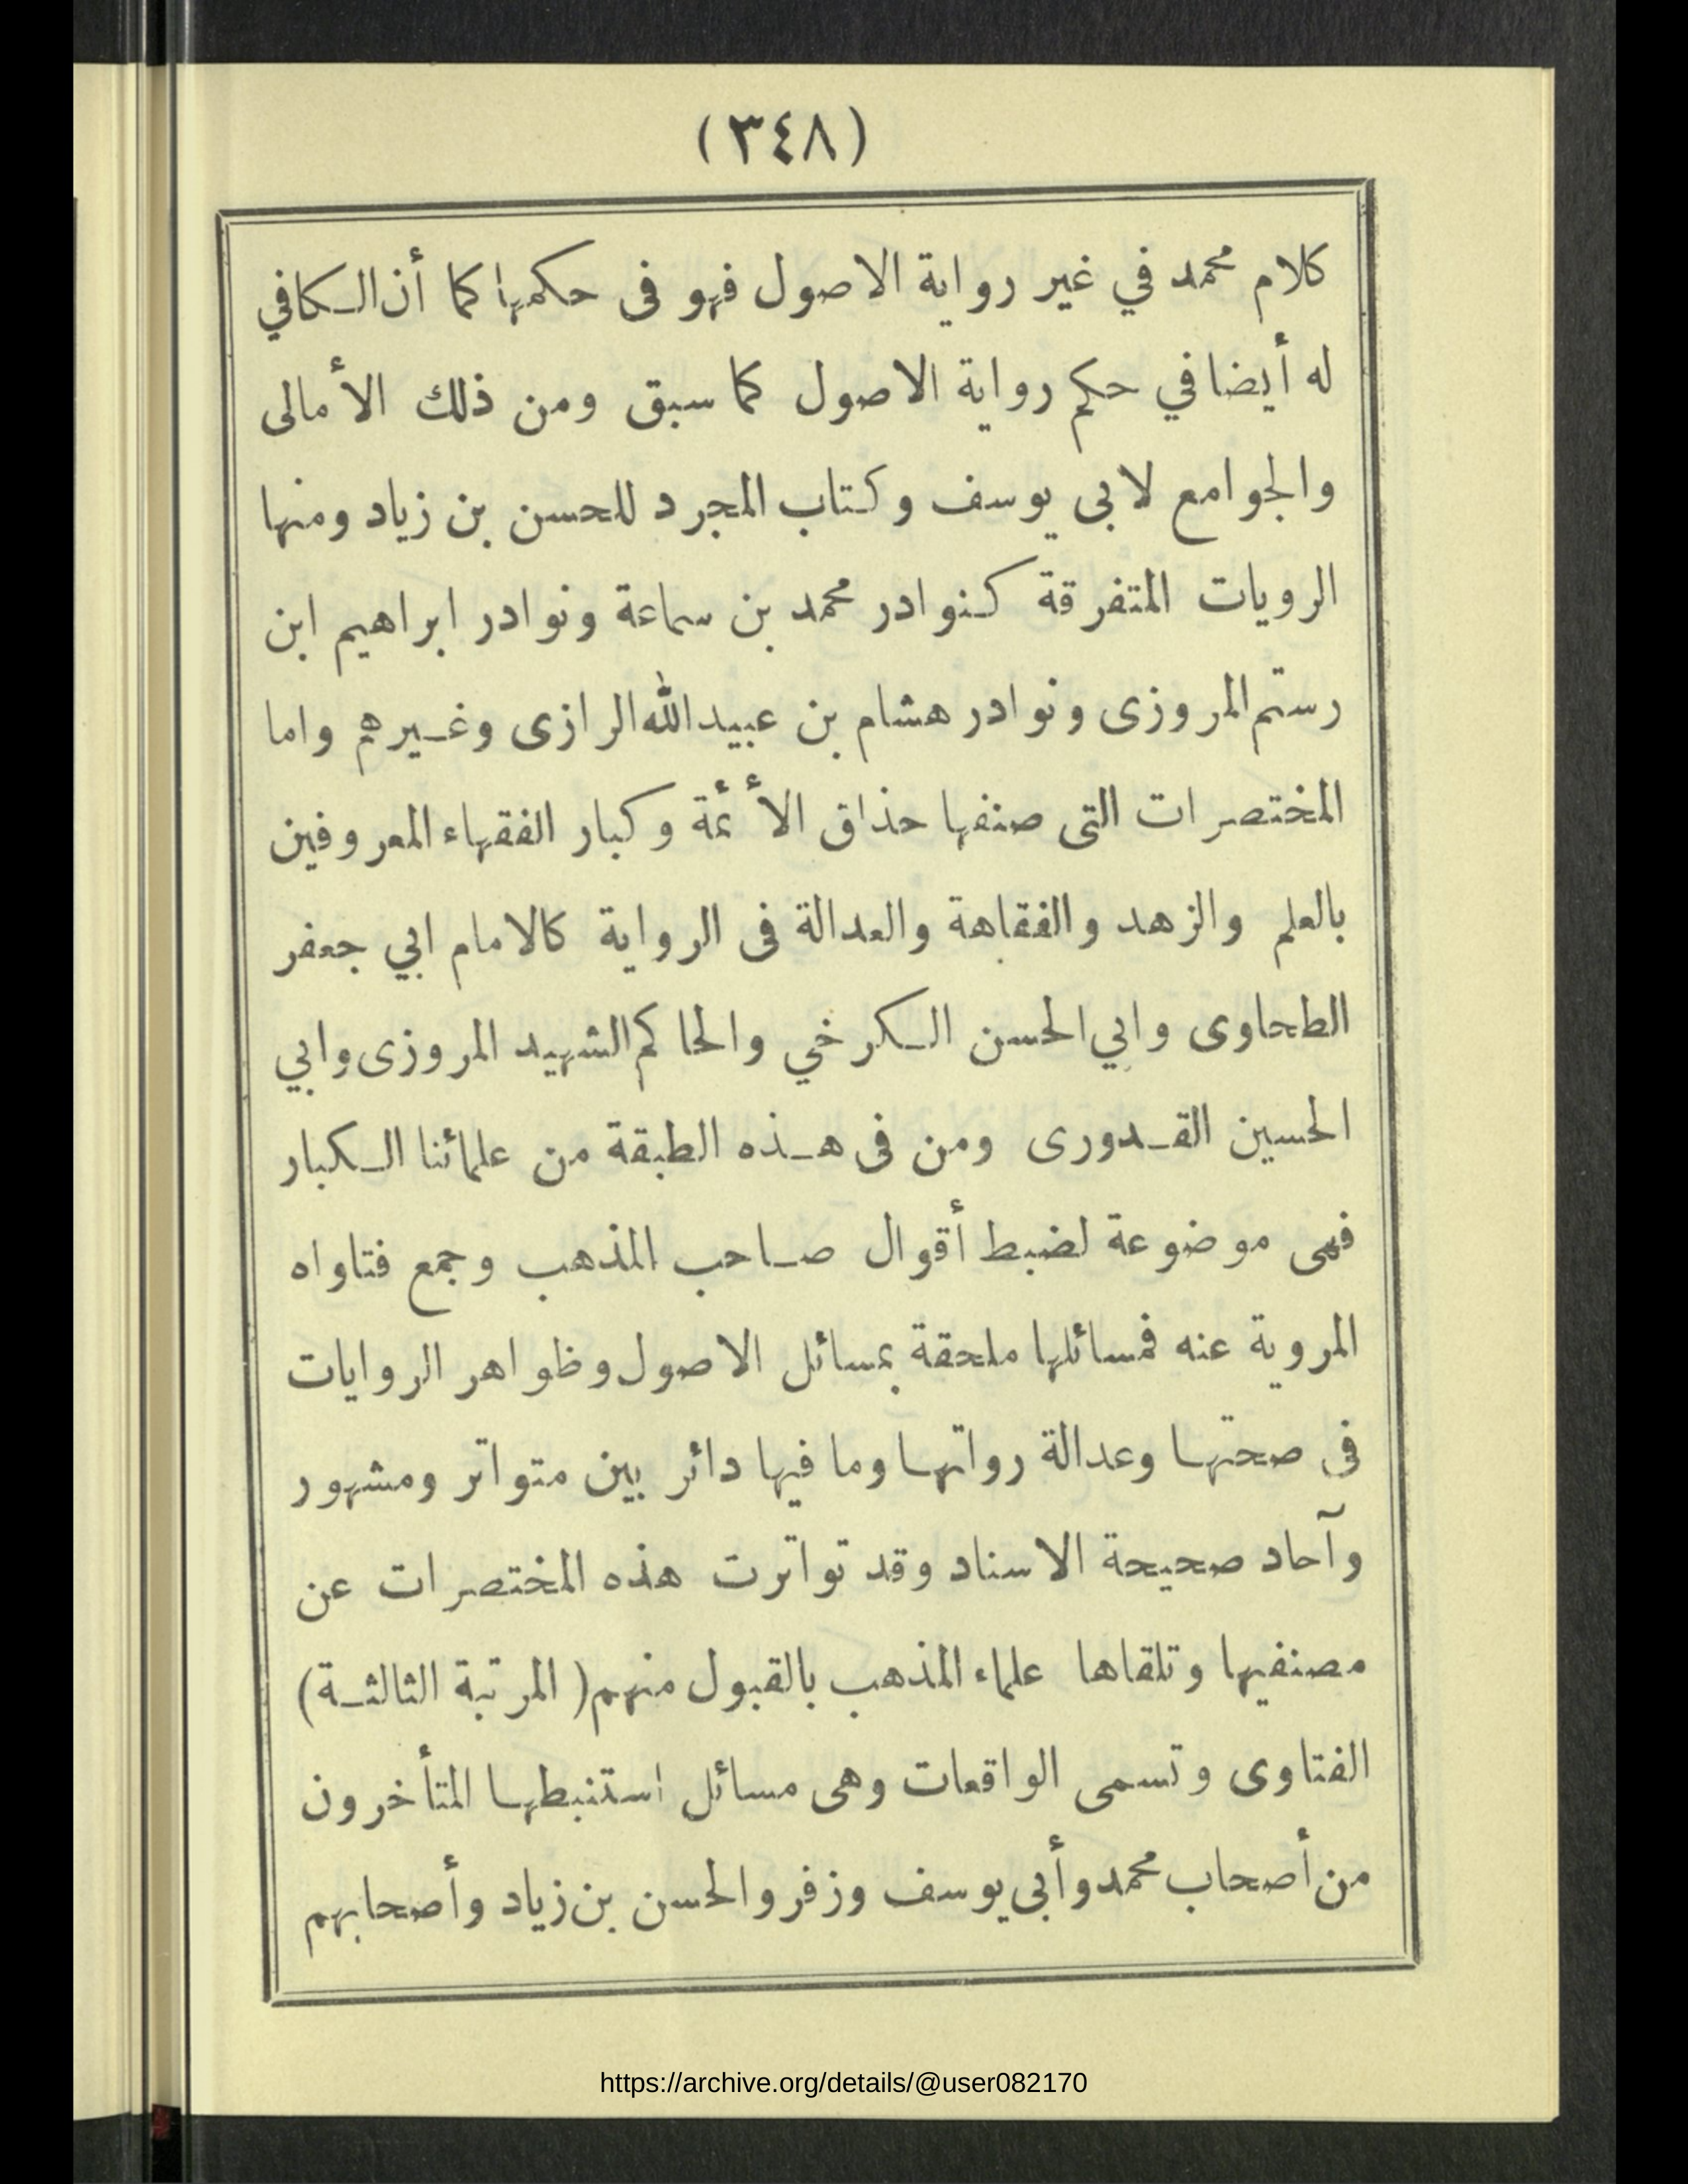 (٣٤٨)
كلام محمد في غير رواية الاصول فهو فى حكمها كما أن الكافي
له أيضا في حكم رواية الاصول كما سبق ومن ذلك الأمالى
والجوامع لابى يوسف وكتاب المجرد للحسن بن زياد ومنها
الرويات المتفرقة كنوادر محمد بن سماعة ونوادر ابراهيم ابن
رستم المروزى ونوادر هشام بن عبيدالله الرازى وغيرهم واما
المختصرات التى صنفها حذاق الأئمة وكبار الفقهاء المعروفين
بالعلم والزهد والفقاهة والعدالة فى الرواية كالامام ابي جعفر
الطحاوى وابي الحسن الكرخي والحاكم الشهيد المروزى وابي
الحسين القدورى ومن فى هذه الطبقة من علمائنا الكبار
فهى موضوعة لضبط أقوال صاحب المذهب وجمع فتاواه
المروية عنه فمسائلها ملحقة بمسائل الاصول وظواهر الروايات
فى صحتها وعدالة رواتها وما فيها دائر بين متواتر ومشهور
وآحاد صحيحة الاسناد وقد تواترت هذه المختصرات عن
مصنفيها وتلقاها علماء المذهب بالقبول منهم (المرتبة الثالثة)
الفتاوى وتسمى الواقعات وهى مسائل استنبطها المتأخرون
من أصحاب محمد وأبى يوسف وزفر والحسن بن زياد وأصحابهم
https://archive.org/details/@user082170